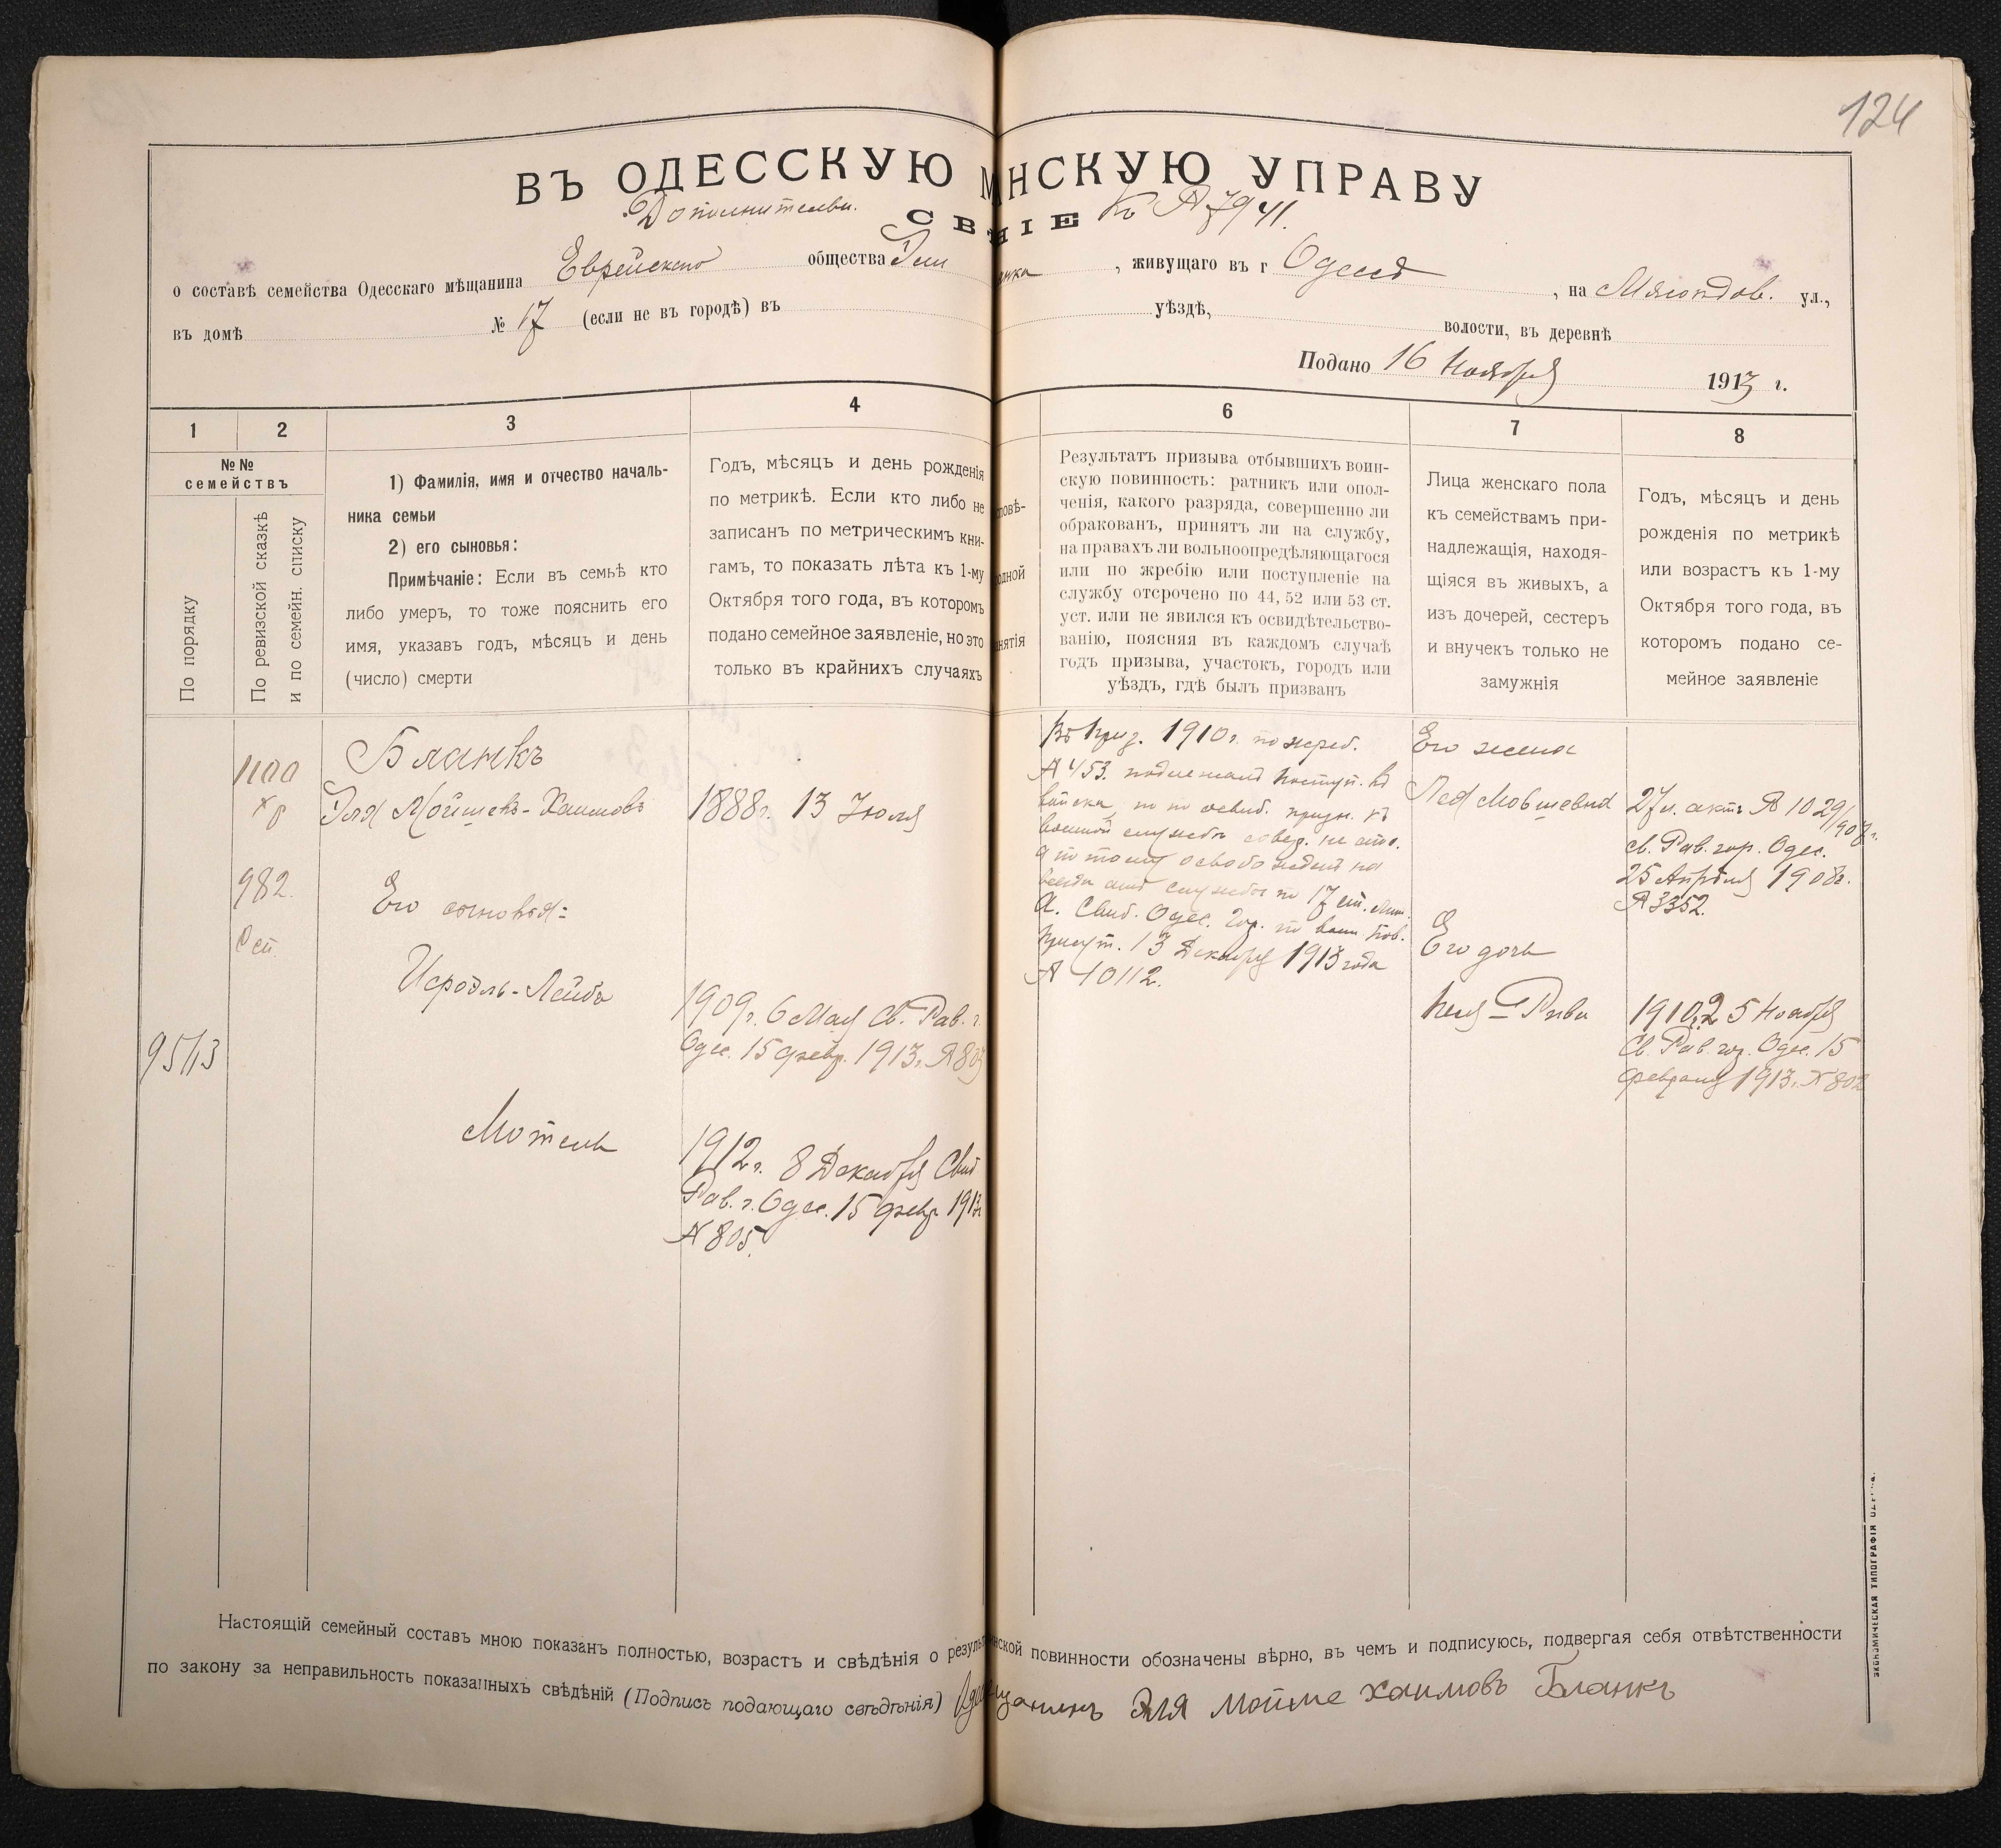 124
ВЪ ОДЕССКУЮ МНСКУЮ УПРАВУ
Дополнительн. СВНІЕ къ № 7941.
о составѣ семейства Одесскаго мѣщанина Еврейскаго общества Эли анка, живущаго въ г Одессѣ, на Мясоѣдов. ул.,
въ домѣ № 17 (если не въ городѣ) въ уѣздѣ, волости, въ деревнѣ
Подано 16 Ноября 1913 г.
1 2 3 4 6 7 8
№№ семействъ
По порядку
По ревизской сказкѣ
и по семейн. списку
1) Фамилія, имя и отчество началь-
ника семьи
2) его сыновья:
Примѣчаніе: Если въ семьѣ кто
либо умеръ, то тоже пояснить его
имя, указавъ годъ, мѣсяцъ и день
(число) смерти
Годъ, мѣсяцъ и день рожденія
по метрикѣ. Если кто либо не
записанъ по метрическимъ кни-
гамъ, то показать лѣта къ 1-му
Октября того года, въ которомъ
подано семейное заявленіе, но это
только въ крайнихъ случаяхъ
повѣ-
одной
анятія
Результатъ призыва отбывшихъ воин-
скую повинность: ратникъ или опол-
ченія, какого разряда, совершенно ли
обракованъ, принятъ ли на службу,
на правахъ ли вольноопредѣляющагося
или по жребію или поступленіе на
службу отсрочено по 44, 52 или 53 ст.
уст. или не явился къ освидѣтельство-
ванію, поясняя въ каждомъ случаѣ
годъ призыва, участокъ, городъ или
уѣздъ, гдѣ былъ призванъ
Лица женскаго пола
къ семействамъ при-
надлежащія, находя-
щіяся въ живыхъ, а
изъ дочерей, сестеръ
и внучекъ только не
замужнія
Годъ, мѣсяцъ и день
рожденія по метрикѣ
или возрастъ къ 1-му
Октября того года, въ
которомъ подано се-
мейное заявленіе
9513
1100
982
Бланкъ
Эля Мойшевъ-Хаимовъ
Его сыновья:
Исроэль-Лейбъ
Мотель
1888г. 13 Іюля
1909г. 6 Мая Св. Рав. г.
Одес. 15 февр. 1913г. № 803
1912г. 8 Декабря Свид
Рав. г. Одес. 15 февр 1913г
№ 805.
Въ Приз. 1910г. по жреб.
№ 453. подлежалъ поступ. въ
войска, но по освид. призн. къ
военной службѣ совер. не спос.
а потому освобожденъ на
всегда отъ службы по 17 ст. лит.
А. Свид. Одес. Гор. по воин. пов.
Присут. 13 Декабря 1913 года
№ 10112.
Его жена
Лея Мовшевна
Его дочь
Рива
27 л. актъ № 1029/908г.
св. Рав. гор. Одес.
25 Апрѣля 1908г.
№ 3352.
1910г. 25 Ноября
Св. Рав. гор. Одес. 15
февраля 1913г. № 802
Настоящій семейный составъ мною показанъ полностью, возрастъ и свѣдѣнія о результ инской повинности обозначены вѣрно, въ чемъ и подписуюсь, подвергая себя отвѣтственности
по закону за неправильность показанныхъ свѣдѣній (Подпись подающаго свѣдѣнія) Одес щанинъ Эля Мойше Хаимовъ Бланкъ
ЭКОНОМИЧЕСКАЯ ТИПОГРАФІЯ